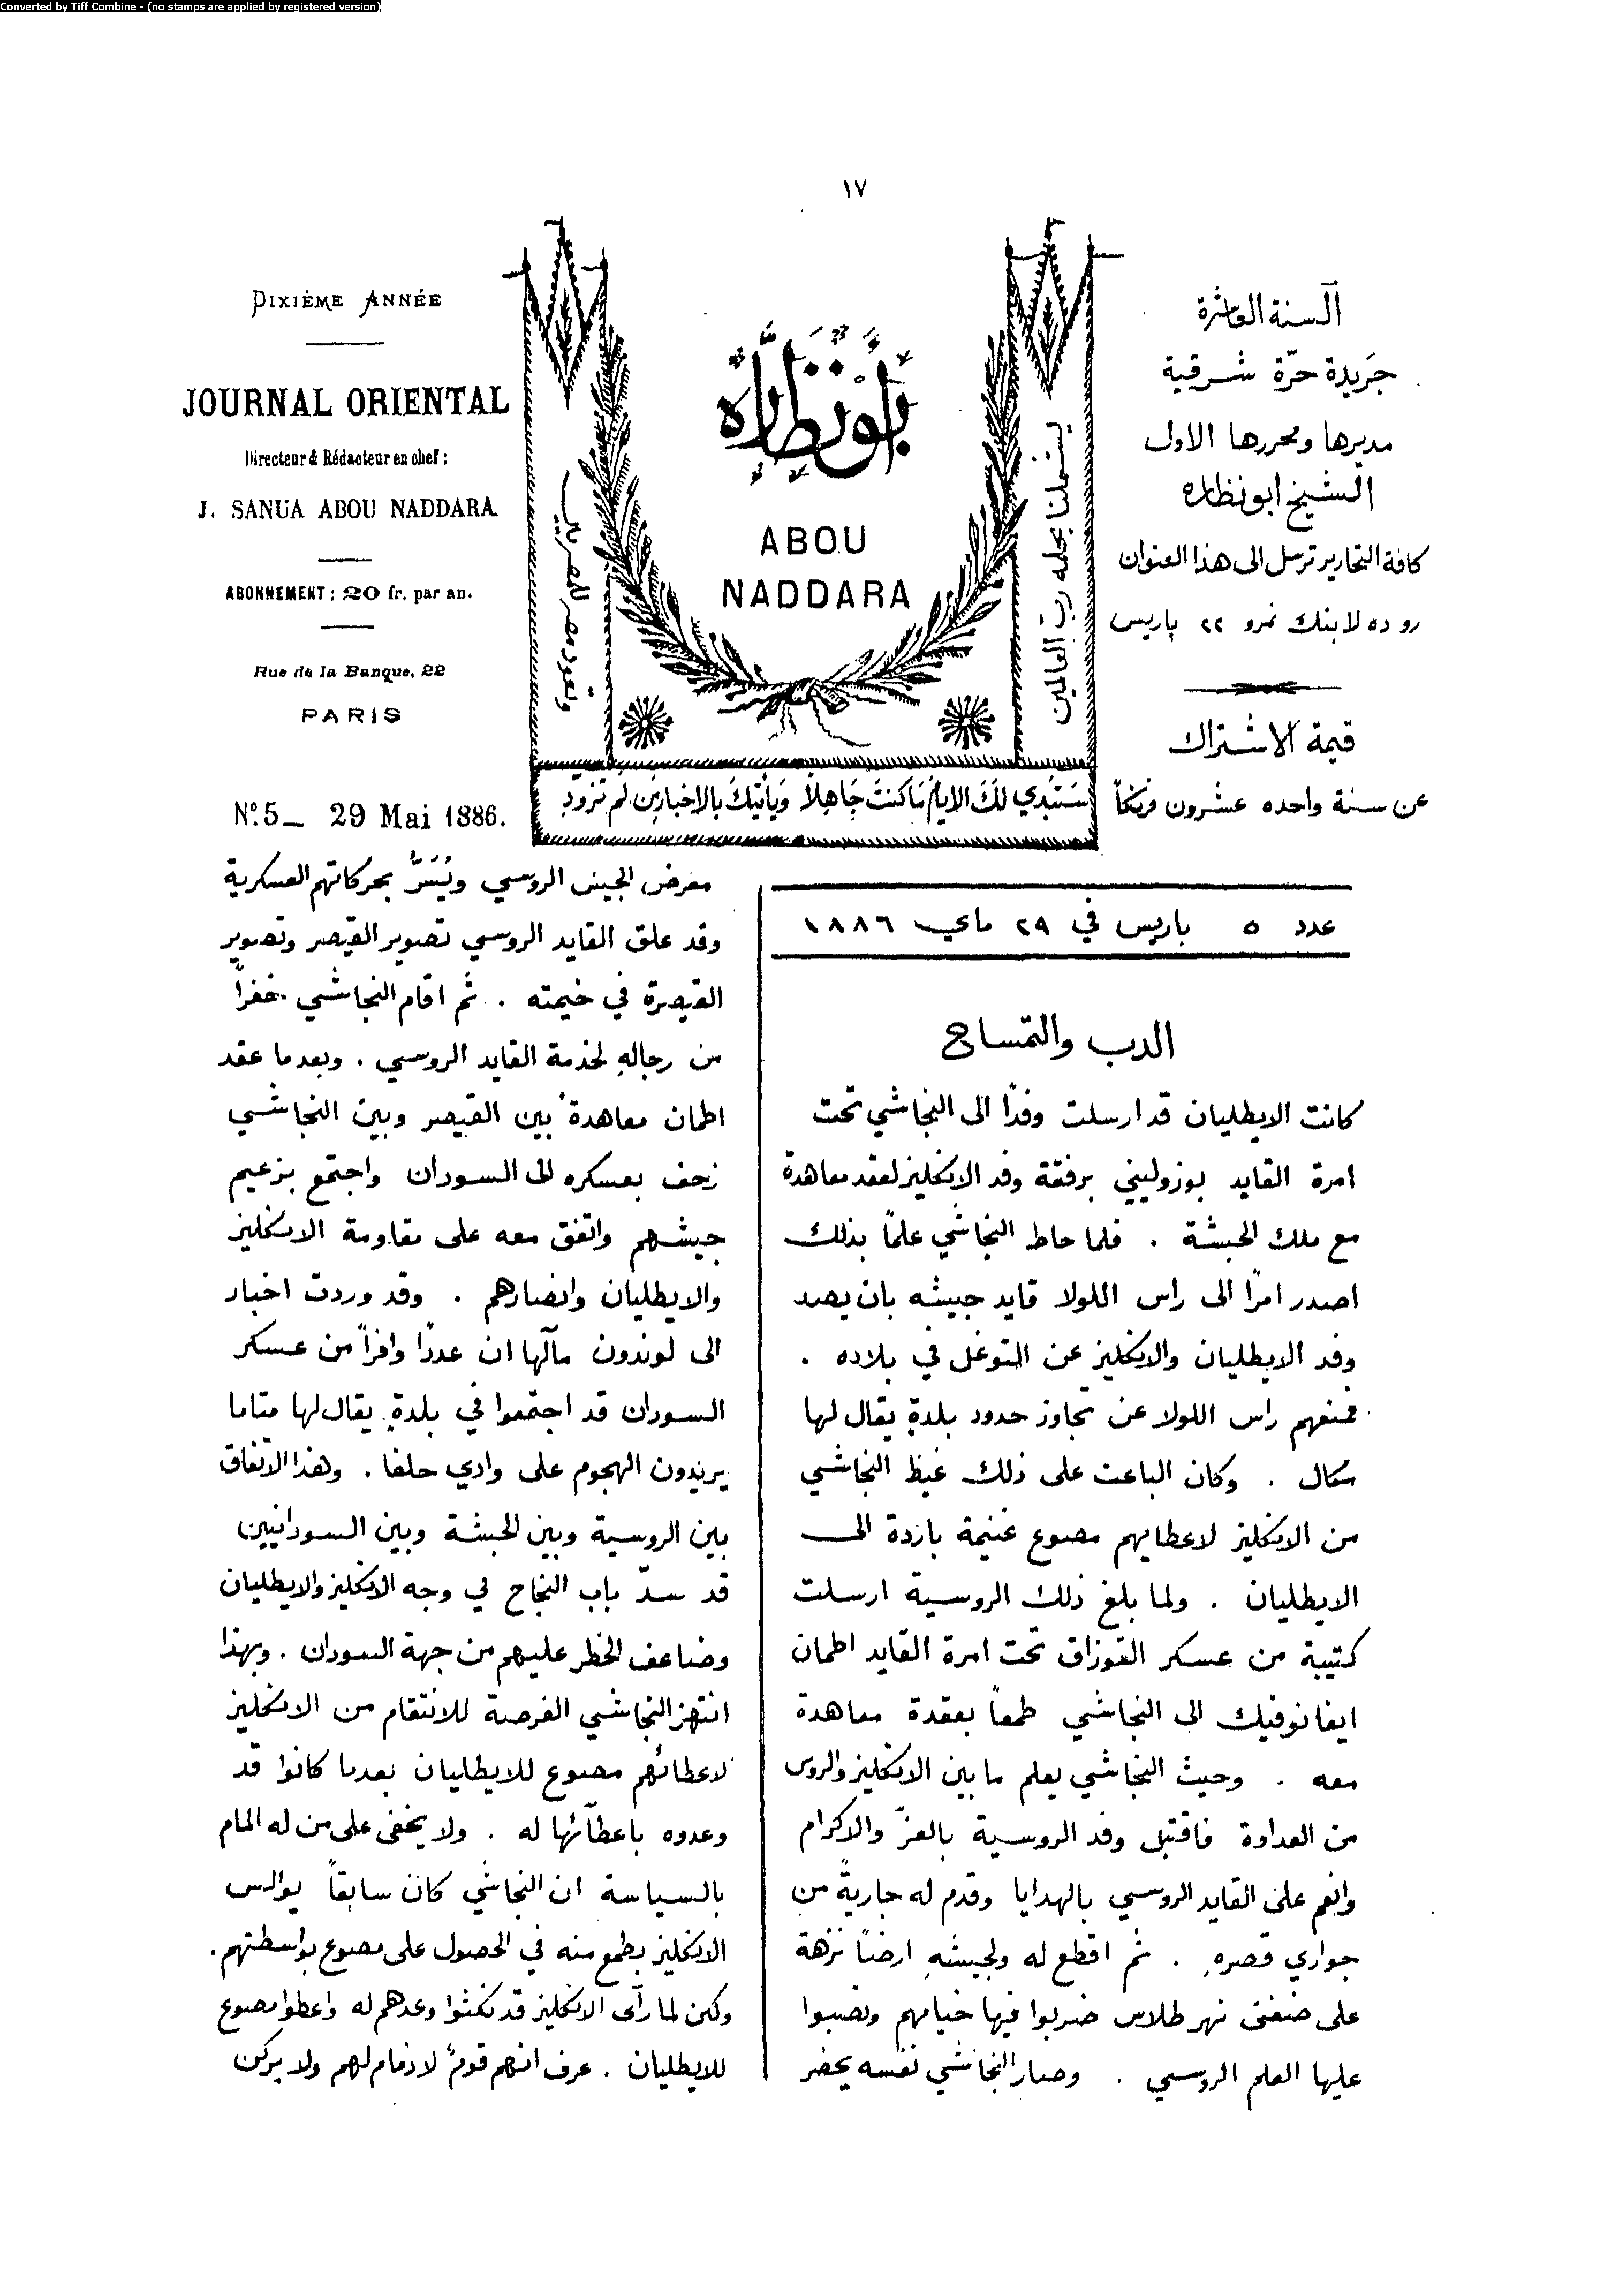 Converted by Tiff Combine - (no stamps are applied by registered version)
١٧
DIXIÈME ANNÉE
JOURNAL ORIENTAL
Directeur & Rédacteur en chef :
J. SANUA ABOU NADDARA
ABONNEMENT : 20 fr. par an.
Rue de la Banque, 22
PARIS
Nº. 5_ 29 Mai 1886.
ابو نظاره
ABOU
NADDARA
يشملنا بحلمه رب العالمين
وتعود مصر للمصريين
سَتُبدي لَكَ الايامُ مَا كنتَ جَاهِلاً وَيأتيكَ بالاخبارِ مَن لم تزودِ
ألسنة العاشرة
جَريدة حرّة شرقية
مديرها ومحررها الاول
الشيخ ابو نظاره
كافة التحارير ترسل الى هذا العنوان
رو ده لا بنك نمرو ٢٢ پاريس
قيمة الاشتراك
عن سنة واحده عشرون فرنكاً
عدد ٥ باريس في ٢٩ ماي ١٨٨٦
الدب والتمساح
كانت الايطليان قد ارسلت وفدًا الى النجاشي تحت
امرة القايد بوزوليني برفقة وفد الانكليز لعقد معاهدة
مع ملك الحبشة . فلما حاط النجاشي علمًا بذلك
اصدر امرًا الى راس اللولا قايد جيشه بان يصد
وفد الايطليان والانكليز عن التوغل في بلاده .
فمنعهم راس اللولا عن تجاوز حدود بلدةٍ يقال لها
سكال . وكان الباعت على ذلك غيظ النجاشي
من الانكليز لاعطايهم مصوع غنيمة باردة الى
الايطليان . ولما بلغ ذلك الروسية ارسلت
كتيبة من عسكر القوزاق تحت امرة القايد اطمان
ايفانوفيك الى النجاشي طمعاً بعقدة معاهدة
معه . وحيث النجاشي يعلم ما بين الانكليز والروس
من العداوة فاقتبل وفد الروسية بالعزّ والاكرام
وانعم على القايد الروسي بالهدايا وقدم له جاريةً من
جواري قصره . ثم اقطع له ولجيشهِ ارضاً نزهة
على ضفتى نهر طلاس ضربوا فيها خيامهم ونصبوا
عليها العلم الروسي . وصار النجاشي نفسه يحضر
معرض الجيش الروسي ويُسَرُّ بحركاتهم العسكرية
وقد علق القايد الروسي تصوير القيصر وتصوير
القيصرة في خيمته . ثم اقام النجاشي خفراً
من رجالهِ لخدمة القايد الروسي . وبعدما عقد
اطمان معاهدة بين القيصر وبين النجاشي
زحف بعسكره الى السودان واجتمع بزعيم
جيشهم واتفق معه على مقاومة الانكليز
والايطليان وانصارهم . وقد وردت اخبار
الى لوندون مآلها ان عددًا وافراً من عسكر
السودان قد اجتمعوا في بلدةٍ يقال لها متاما
يريدون الهجوم على وادي حلفا . وهذا الاتفاق
بين الروسية وبين الحبشة وبين السودانيين
قد سدّ باب النجاح في وجه الانكليز والايطليان
وضاعف الخطر عليهم من جهة السودان . وبهذا
انتهز النجاشي الفرصة للانتقام من الانكليز
لاعطائهم مصوع للايطليان بعدما كانوا قد
وعدوه باعطآئها له . ولا يخفى على من له المام
بالسياسة ان النجاشي كان سابقاً يوالس
الانكليز بطمع منه في الحصول على مصوع بواسطتهم .
ولكن لما رآى الانكليز قد نكثوا وعدهم له واعطوا مصوع
للايطليان . عرف انهم قومٌ لا ذمام لهم ولا يركن